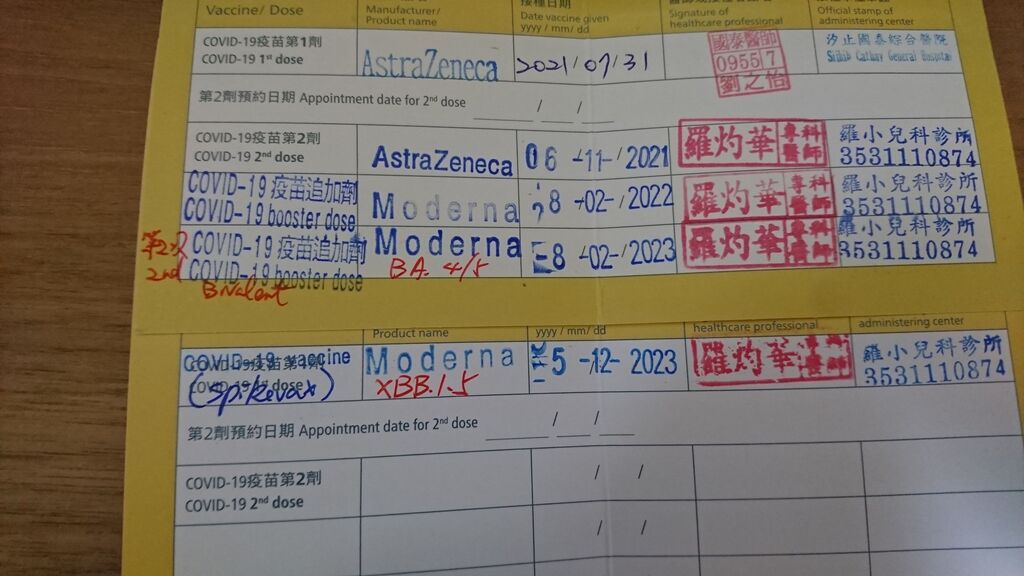 Vaccine/ Dose
Manufacturer/
Product name
Date vaccine given
yyyy / mm/ dd
Signature of
healthcare professional
Official stamp of
administering center
COVID-19疫苗第1劑
COVID-19 1st dose
AstraZeneca
2021/07/31
國泰醫師
09557
劉之怡
汐止國泰綜合醫院
Sijhih Cathay General Hospital
第2劑預約日期 Appointment date for 2nd dose
/ /
COVID-19疫苗第2劑
COVID-19 2nd dose
AstraZeneca
06 -11-/2021
羅灼華 專科醫師
羅小兒科診所
3531110874
COVID-19疫苗追加劑
COVID-19 booster dose
Moderna
8 -02-/2022
羅灼華 專科醫師
羅小兒科診所
3531110874
第2次
2nd
COVID-19疫苗追加劑
COVID-19 booster dose
Bivalent
Moderna
BA. 4/5
8 -02-/2023
羅灼華 專科醫師
羅小兒科診所
3531110874
Product name
yyyy / mm/ dd
healthcare professional
administering center
COVID-19 vaccine
(Spikevax)
Moderna
XBB.1.5
5 -12- 2023
羅灼華 專科醫師
羅小兒科診所
3531110874
第2劑預約日期 Appointment date for 2nd dose
/ /
COVID-19疫苗第2劑
COVID-19 2nd dose
/ /
/ /